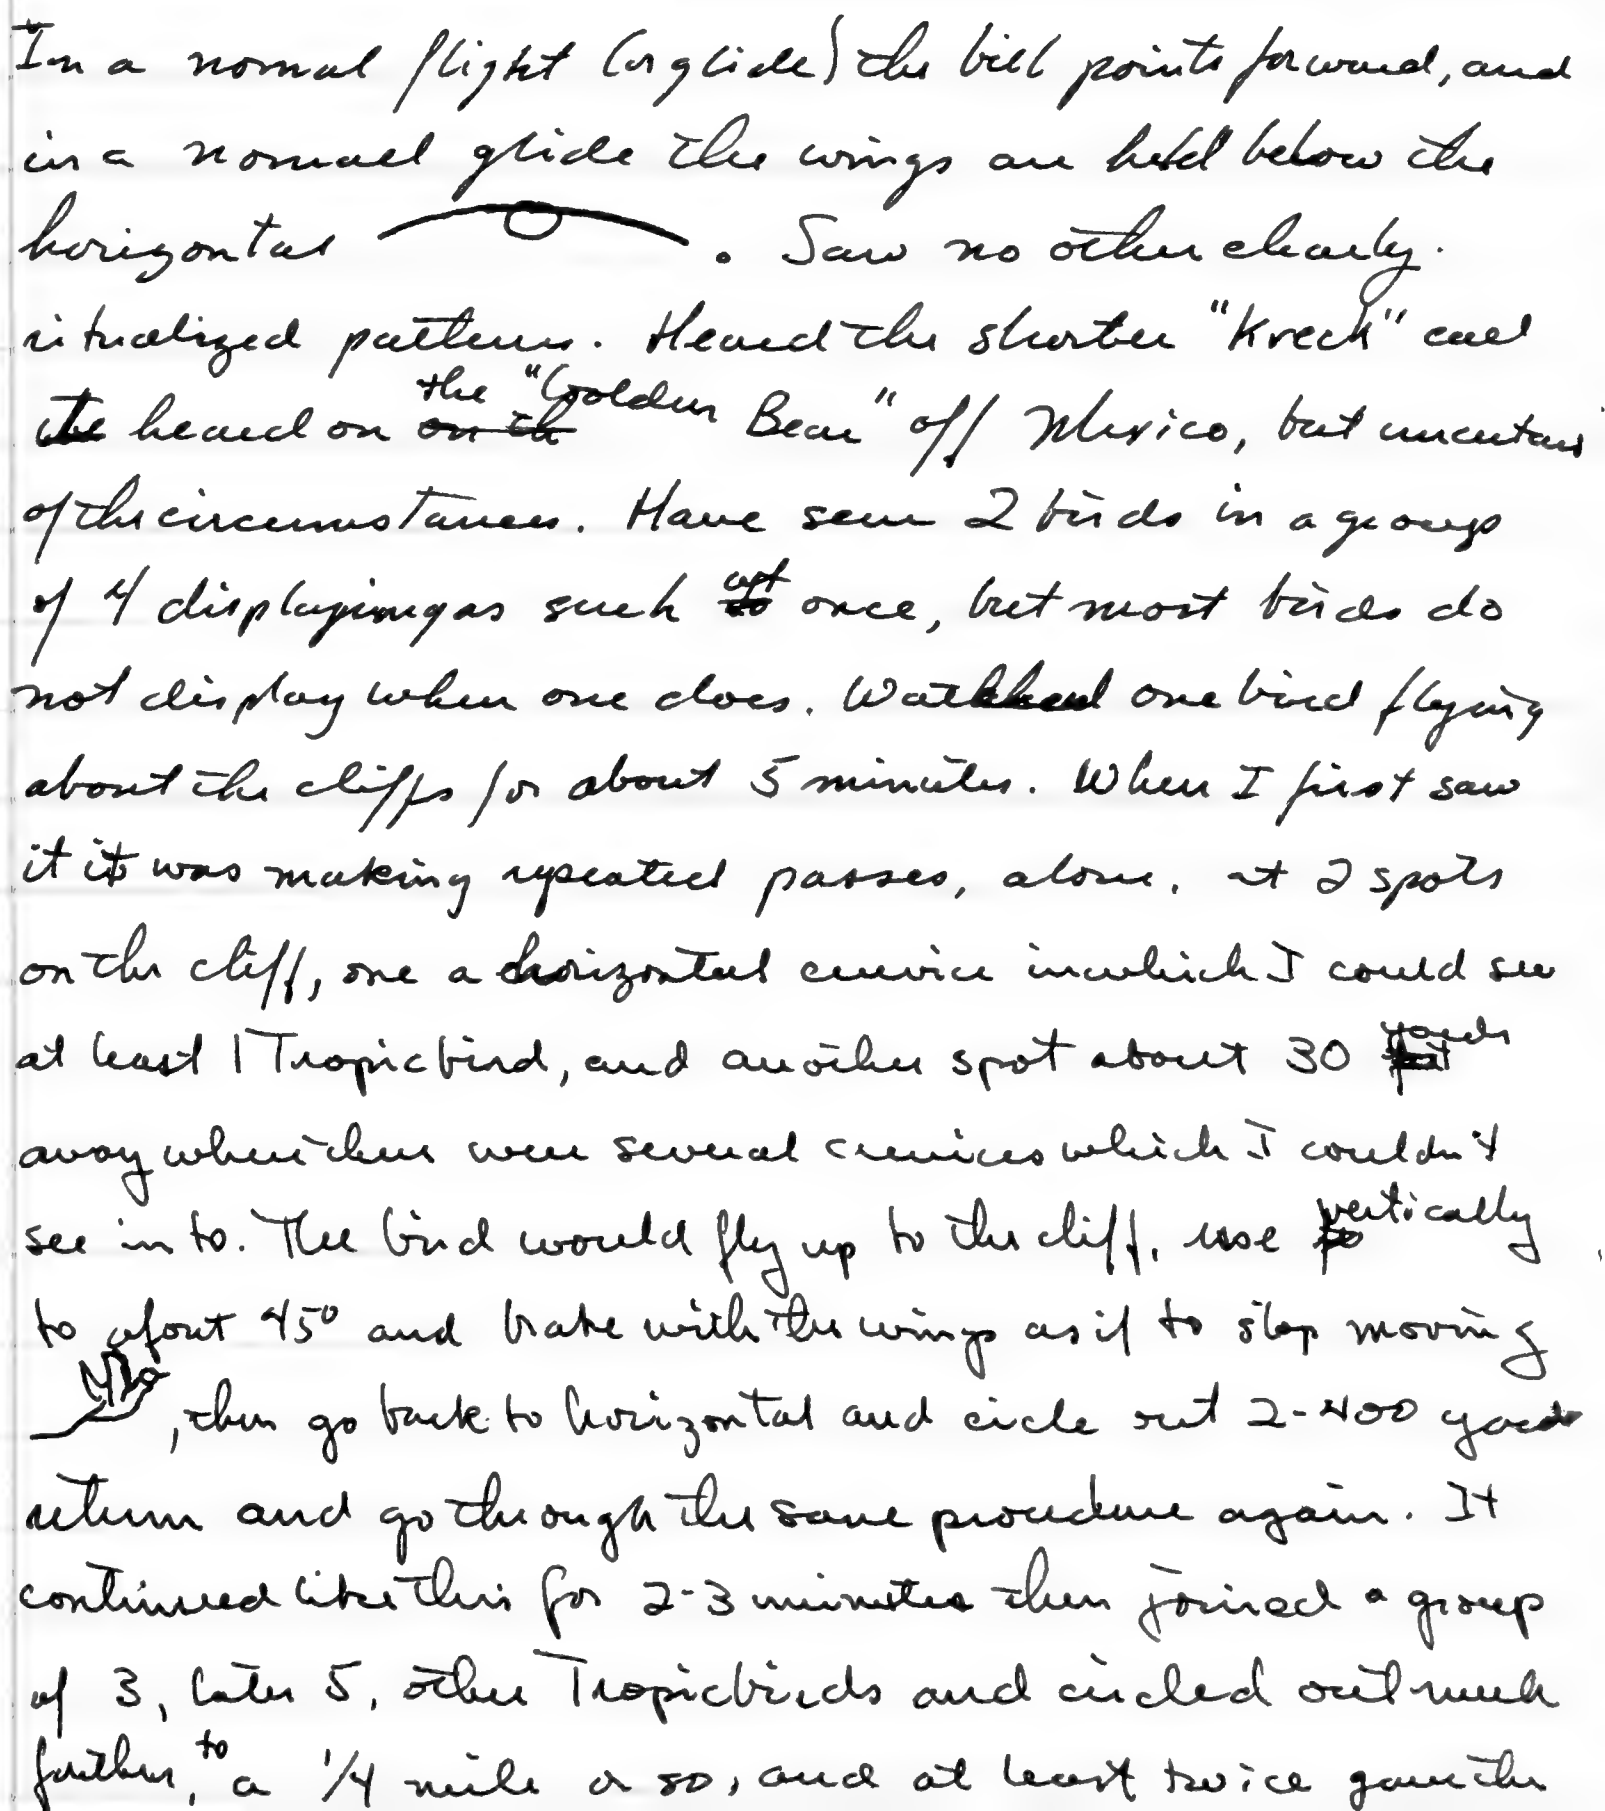 In a normal flight (or glide) the bill points forward, and
in a normal glide the wings are held below the
horizontal . Saw no other clearly
ritualized patterns. Heard the shorter "Kreck" call
heard on the "Golden Bear" off Mexico, but uncertain
of the circumstances. Have seen 2 birds in a group
of 4 displaying as such at once, but most birds do
not display when one does. Watched one bird flying
about the cliffs for about 5 minutes. When I first saw
it it was making repeated passes, alone, at 2 spots
on the cliff, one a horizontal crevice in which I could see
at least 1 Tropicbird, and another spot about 30 yards
away where there were several crevices which I couldn't
see in to. The bird would fly up to the cliff, rise vertically
to about 45° and brake with the wings as if to stop moving
, then go back to horizontal and circle out 2-400 yards
return and go through the same procedure again. It
continued like this for 2-3 minutes then joined a group
of 3, later 5, other Tropicbirds and circled out much
further, to a 1/4 mile or so, and at least twice gave the